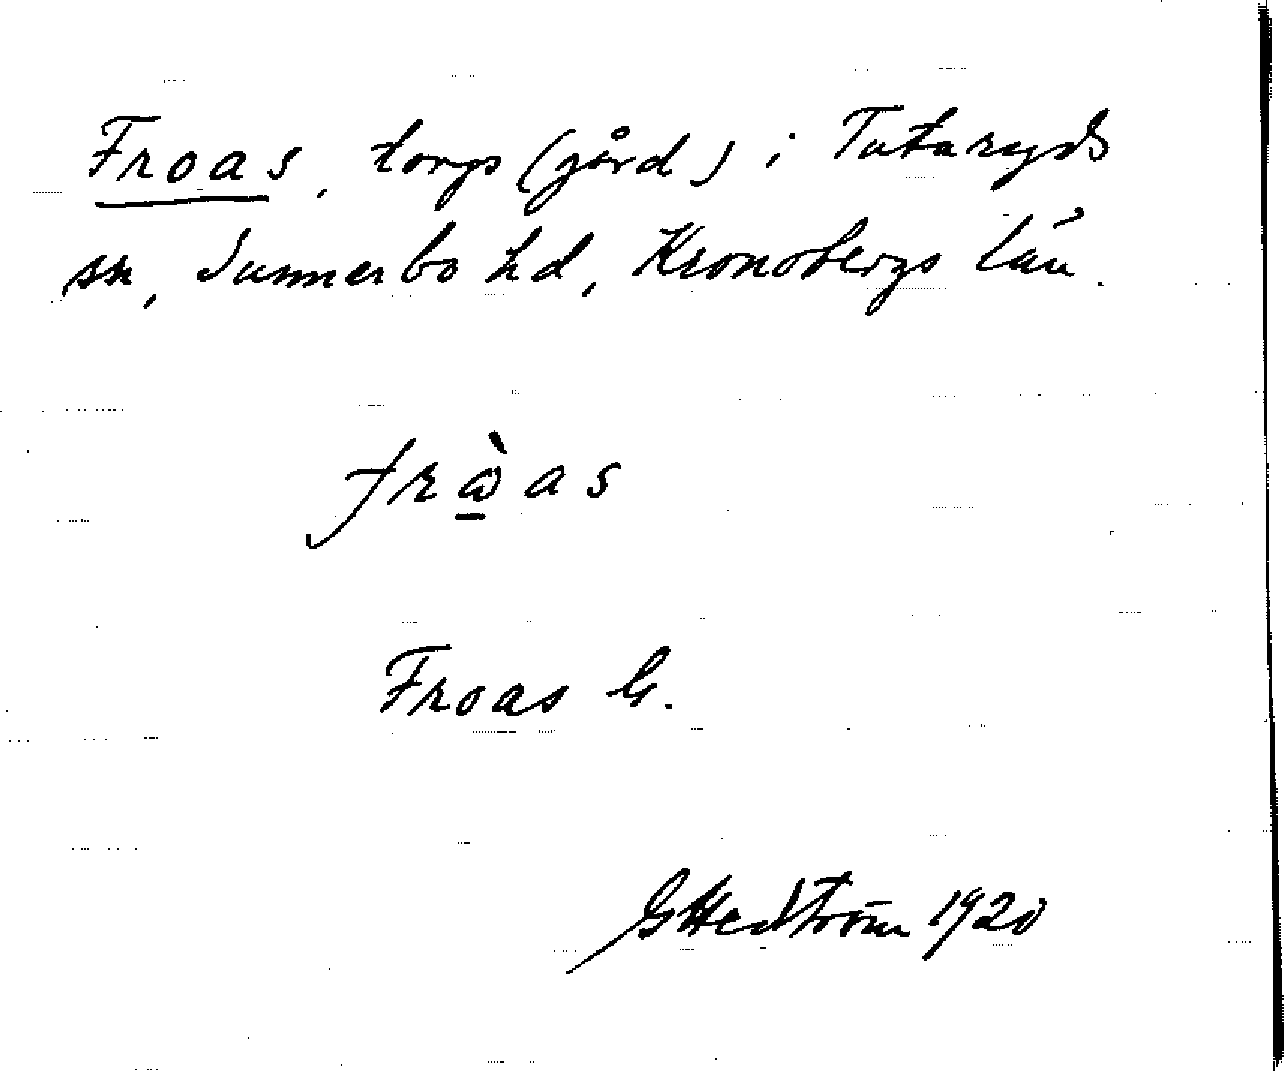 Froas, torp (gård) i Tutaryds
sn, Sunnerbo hd, Kronobergs län.
frὼ̲as
Froas G.
GHedström 1920